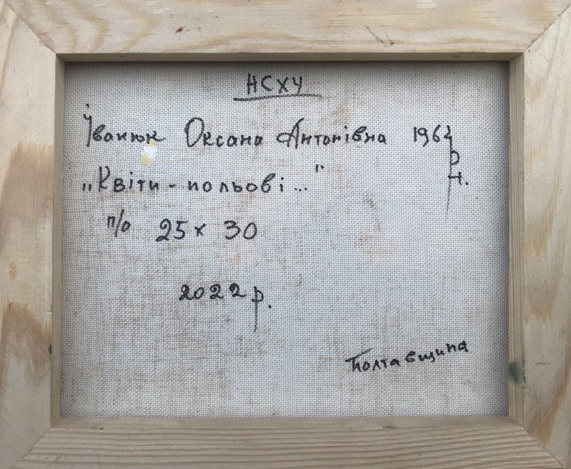 НСХУ
Іванюк Оксана Антонівна 1962 р.н.
„Квіти - польові..."
п/о 25 х 30
2022 р.
Полтавщина